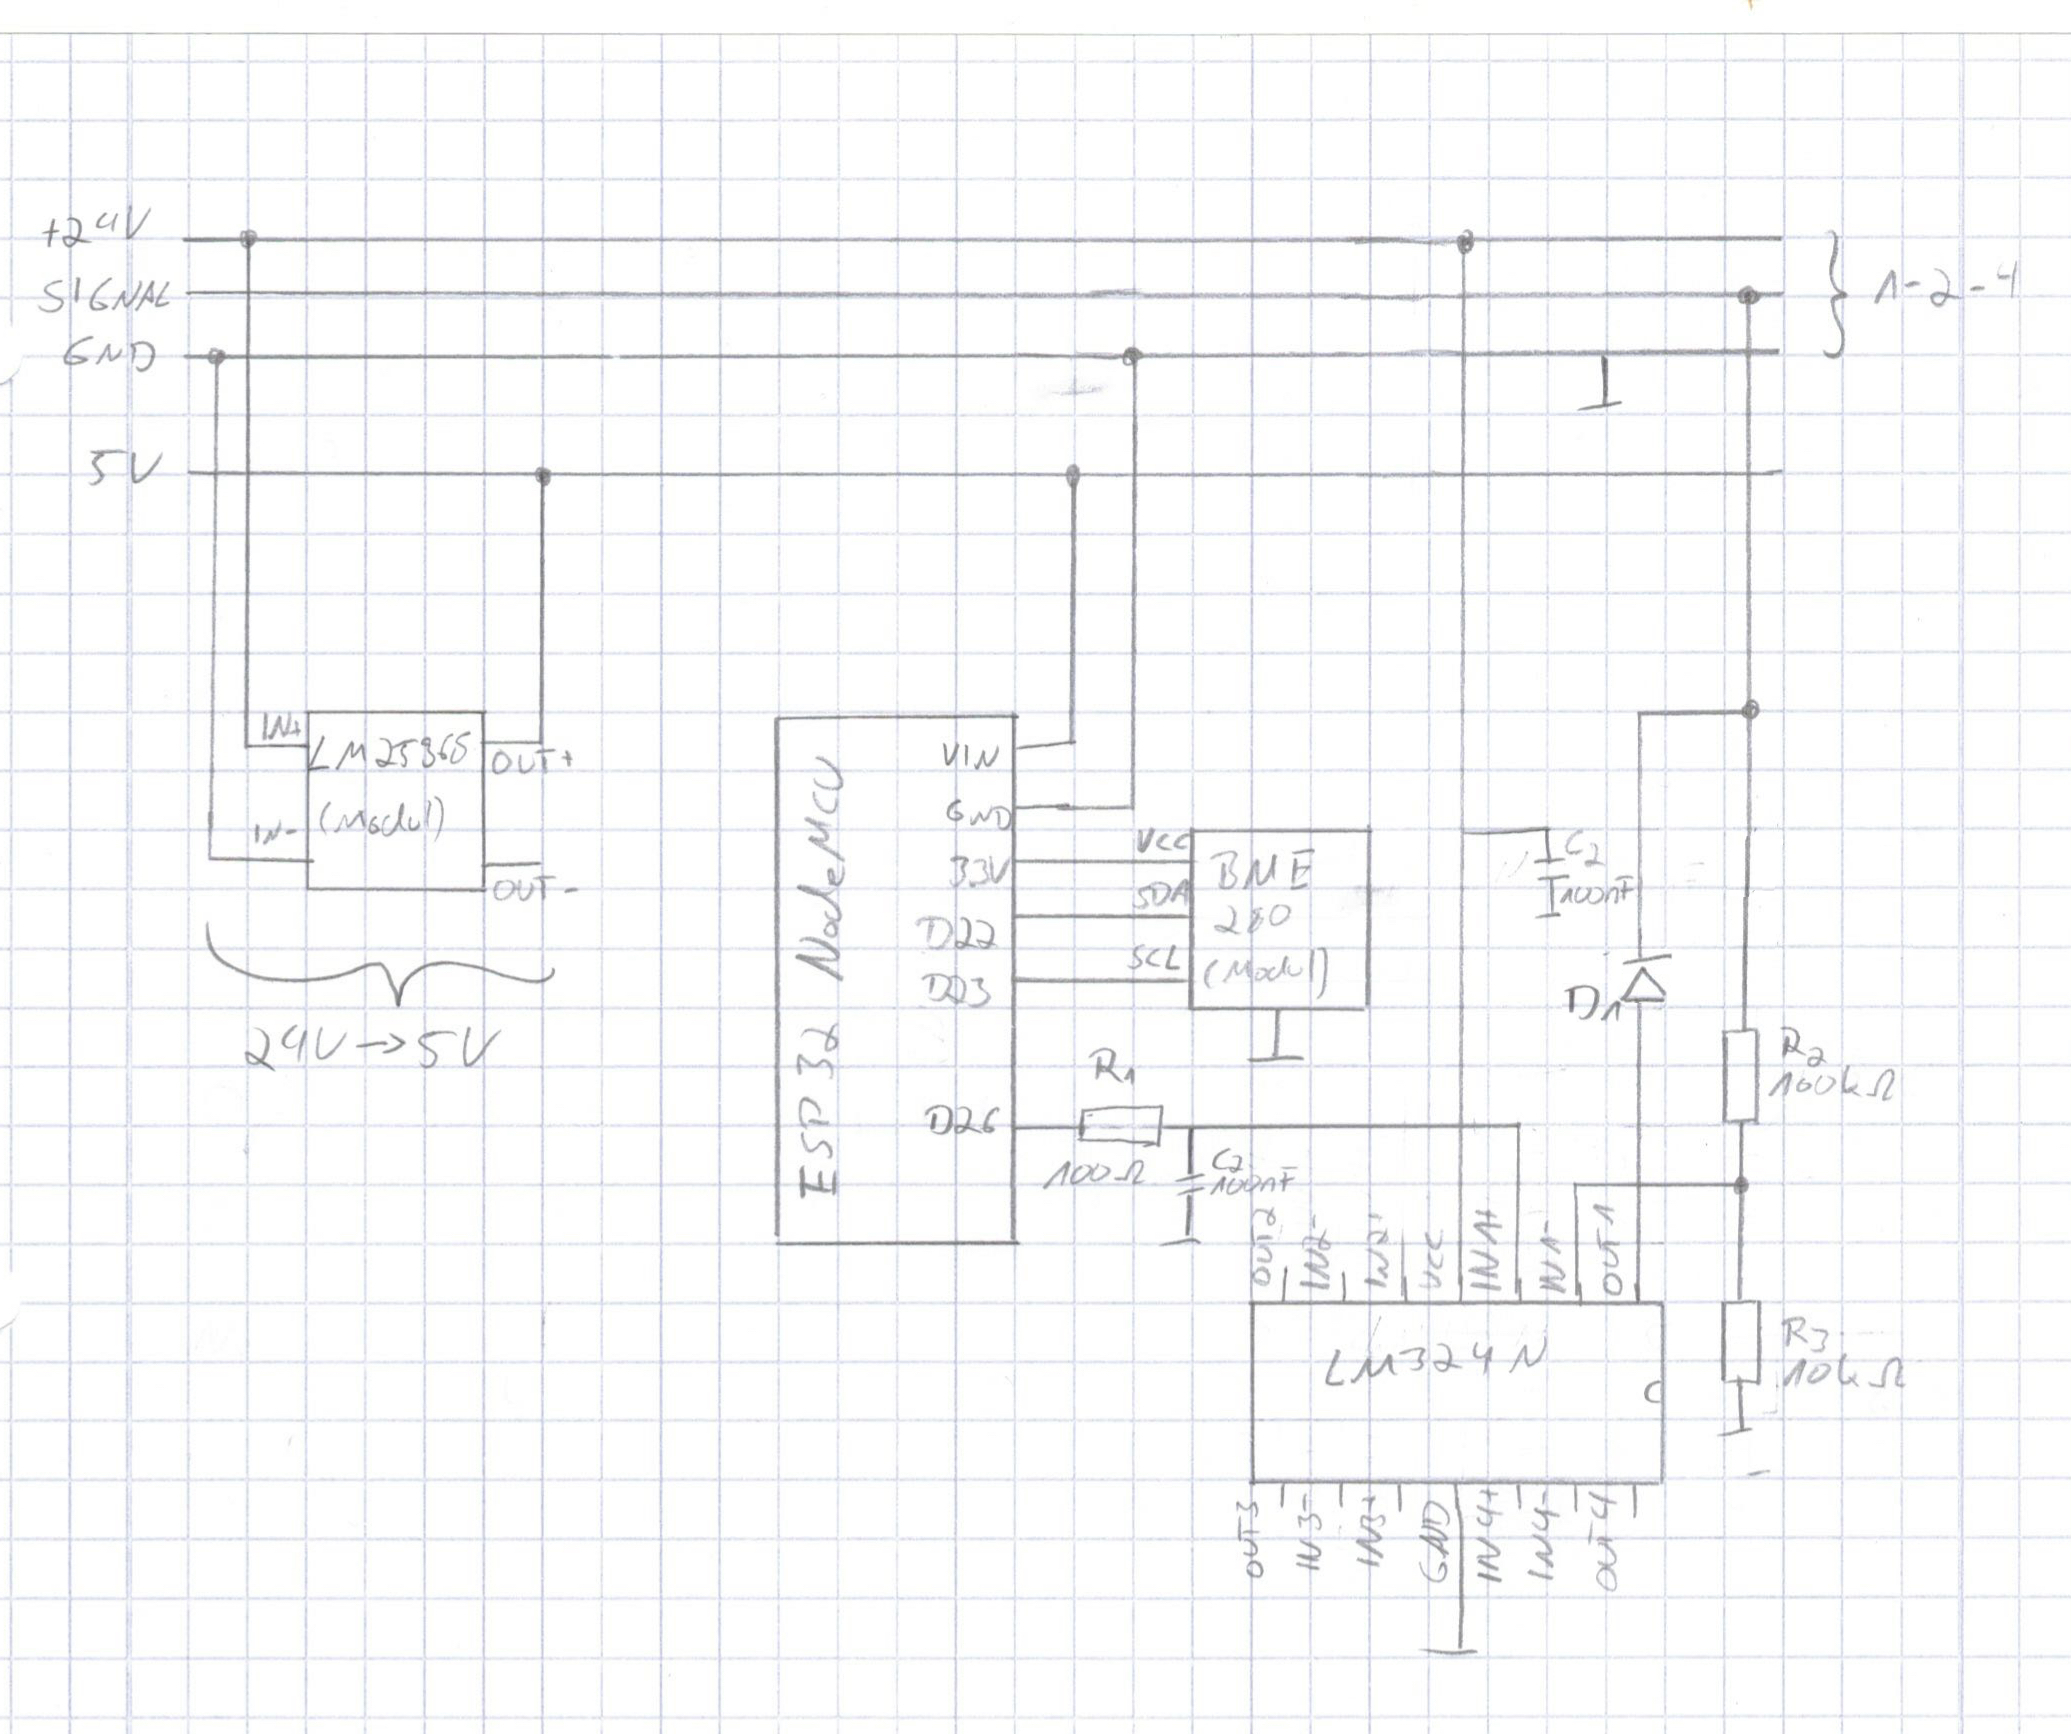 +24V
SIGNAL
GND
1-2-4
5V
IN+
LM2596S
OUT+
(Modul)
IN-
OUT-
24V→5V
ESP32 NodeMCU
VIN
GND
33V
D22
D23
D26
VCC
SDA
SCL
BME
280
(Modul)
R1
100Ω
C2
100nF
C2
100nF
D1
R2
100kΩ
R3
10kΩ
OUT2
IN2-
IN2+
VCC
IN1+
IN1-
OUT1
LM324N
OUT3
IN3-
IN3+
GND
IN4+
IN4-
OUT4